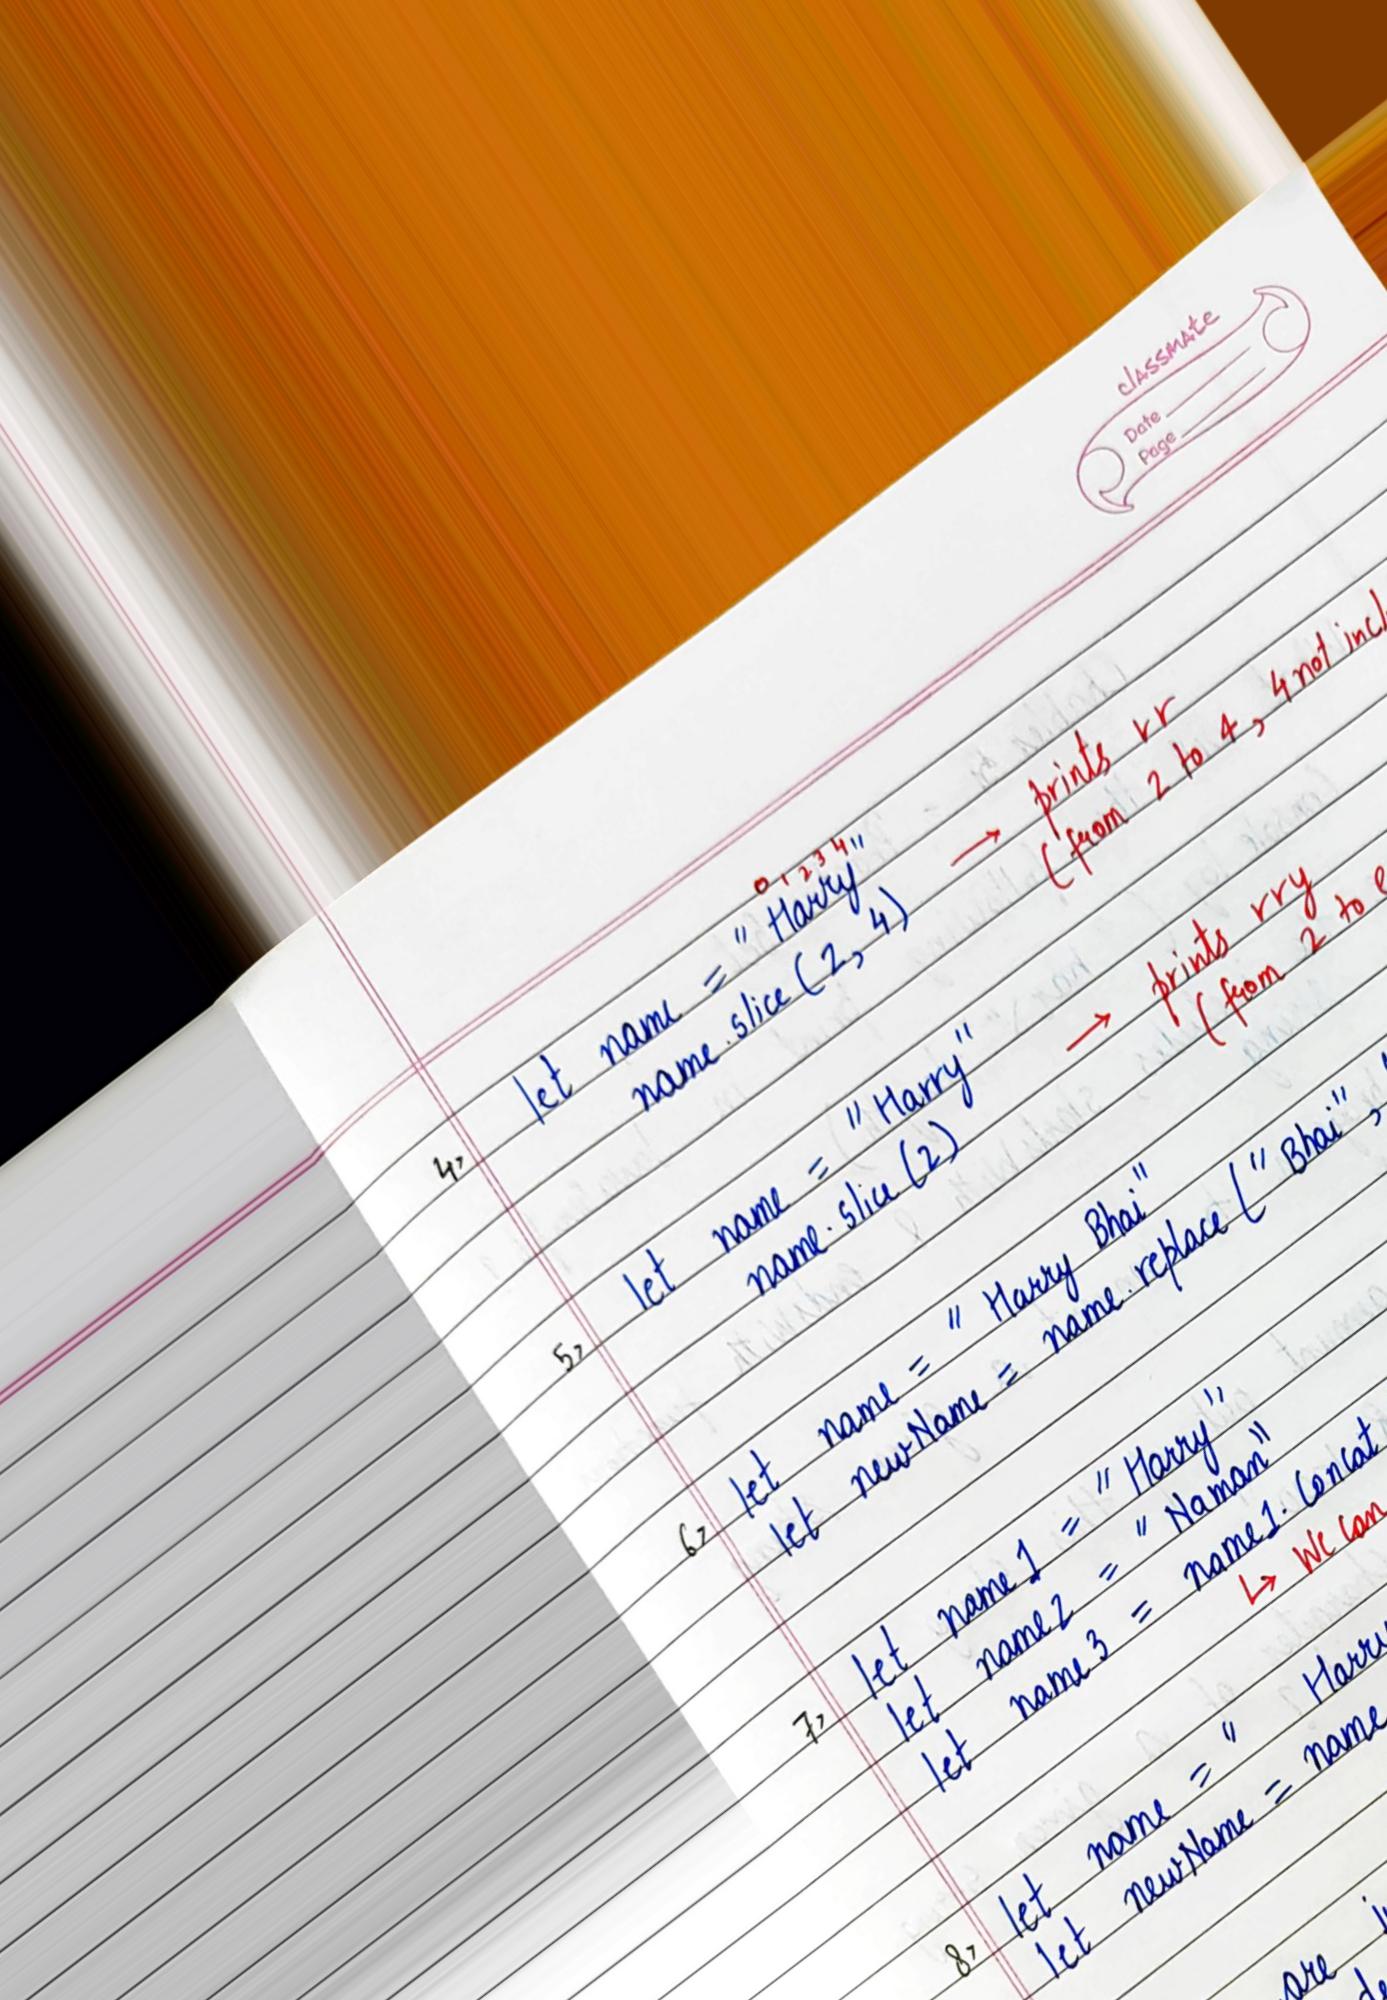 classmate
Date
Page
0 1 2 3 4
4> let name = "Harry" → prints rr
name.slice(2, 4) (from 2 to 4, 4 not incl
5> let name = "Harry" → prints rry
name.slice(2) (from 2 to e
6> let name = "Harry Bhai"
let newName = name.replace("Bhai", "
7> let name1 = "Harry"
let name2 = "Naman"
let name3 = name1.concat
↳ We can
8> let name = " Harry
let newName = name
are